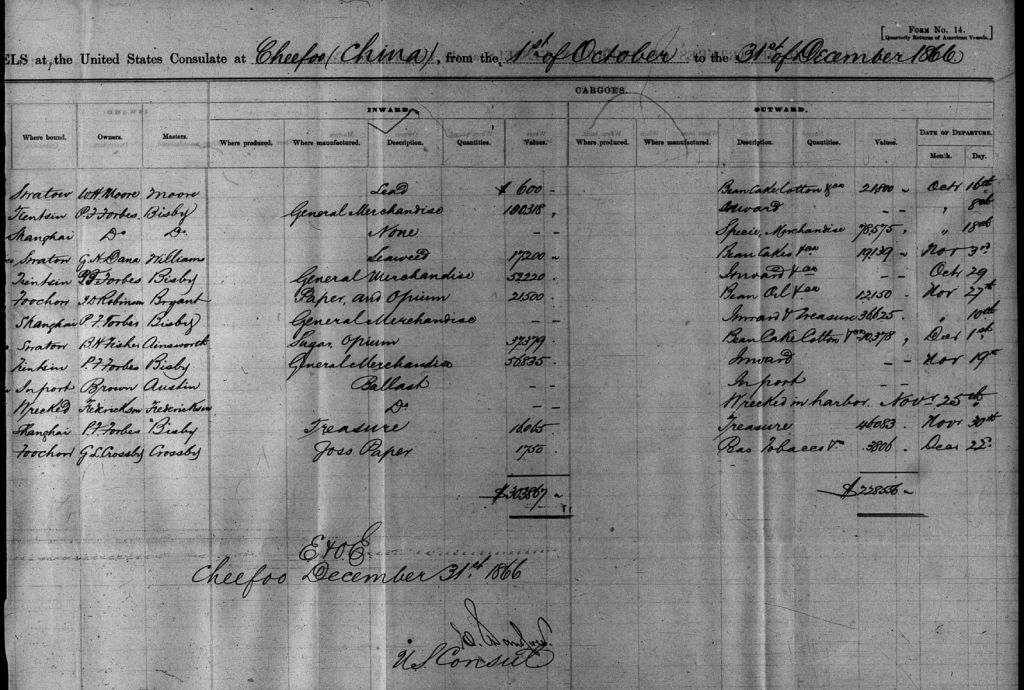 [FORM NO. 14.]
[Quarterly Returns of American Vessels.]
ELS at the United States Consulate at Cheefoo (China), from the 1st of October to the 31st of December 1866
CARGOES.
INWARD. OUTWARD.
Where bound. Owners. Masters. Where produced. Where manufactured. Description. Quantities. Values. Where produced. Where manufactured. Description. Quantities. Values. DATE OF DEPARTURE.
Month. Day.
Swatow W H Moore Moore Lead $ 600 Bean Cake, Cotton &ca 21800 Octr 16th
Tientsin P. F. Forbes Bisby General Merchandise 100318 Onward — — " 8th
Shanghai Do Do None — — Specie, Merchandise 78,575 " 18th
Swatow G. N. Dana Williams Seaweed 17200 Bean Cakes &ca 19139 Nov 3rd
Tientsin P F Forbes Bisby General Merchandise 52220 Inward &ca — — Octr 29
Foochow Robinson Bryant Paper, and Opium 21500 Bean Oil &ca 12150 Nov 27th
Shanghai P. F. Forbes Bisby General Merchandise — — Inward & Treasure 36625 " 10th
Swatow B. H. Fisher Ainsworth Sugar, Opium 37379 Bean Cake Cotton Decr 1st
Tientsin P. F. Forbes Bisby General Merchandise 56835 Inward — — Nov 19th
In port Brown Austin Ballast — — In port — —
Wrecked Frederickson Frederickson Do — — Wrecked in harbor. Novr 25th
Shanghai P. F. Forbes Bisby Treasure 16065 Treasure 46083 Novr 30th
Foochow G L Crossby Crossby Joss Paper 1750 Tobacco 3806 Decr 22
$303867 $228556
E & O E.
Cheefoo December 31st 1866
U S Consul